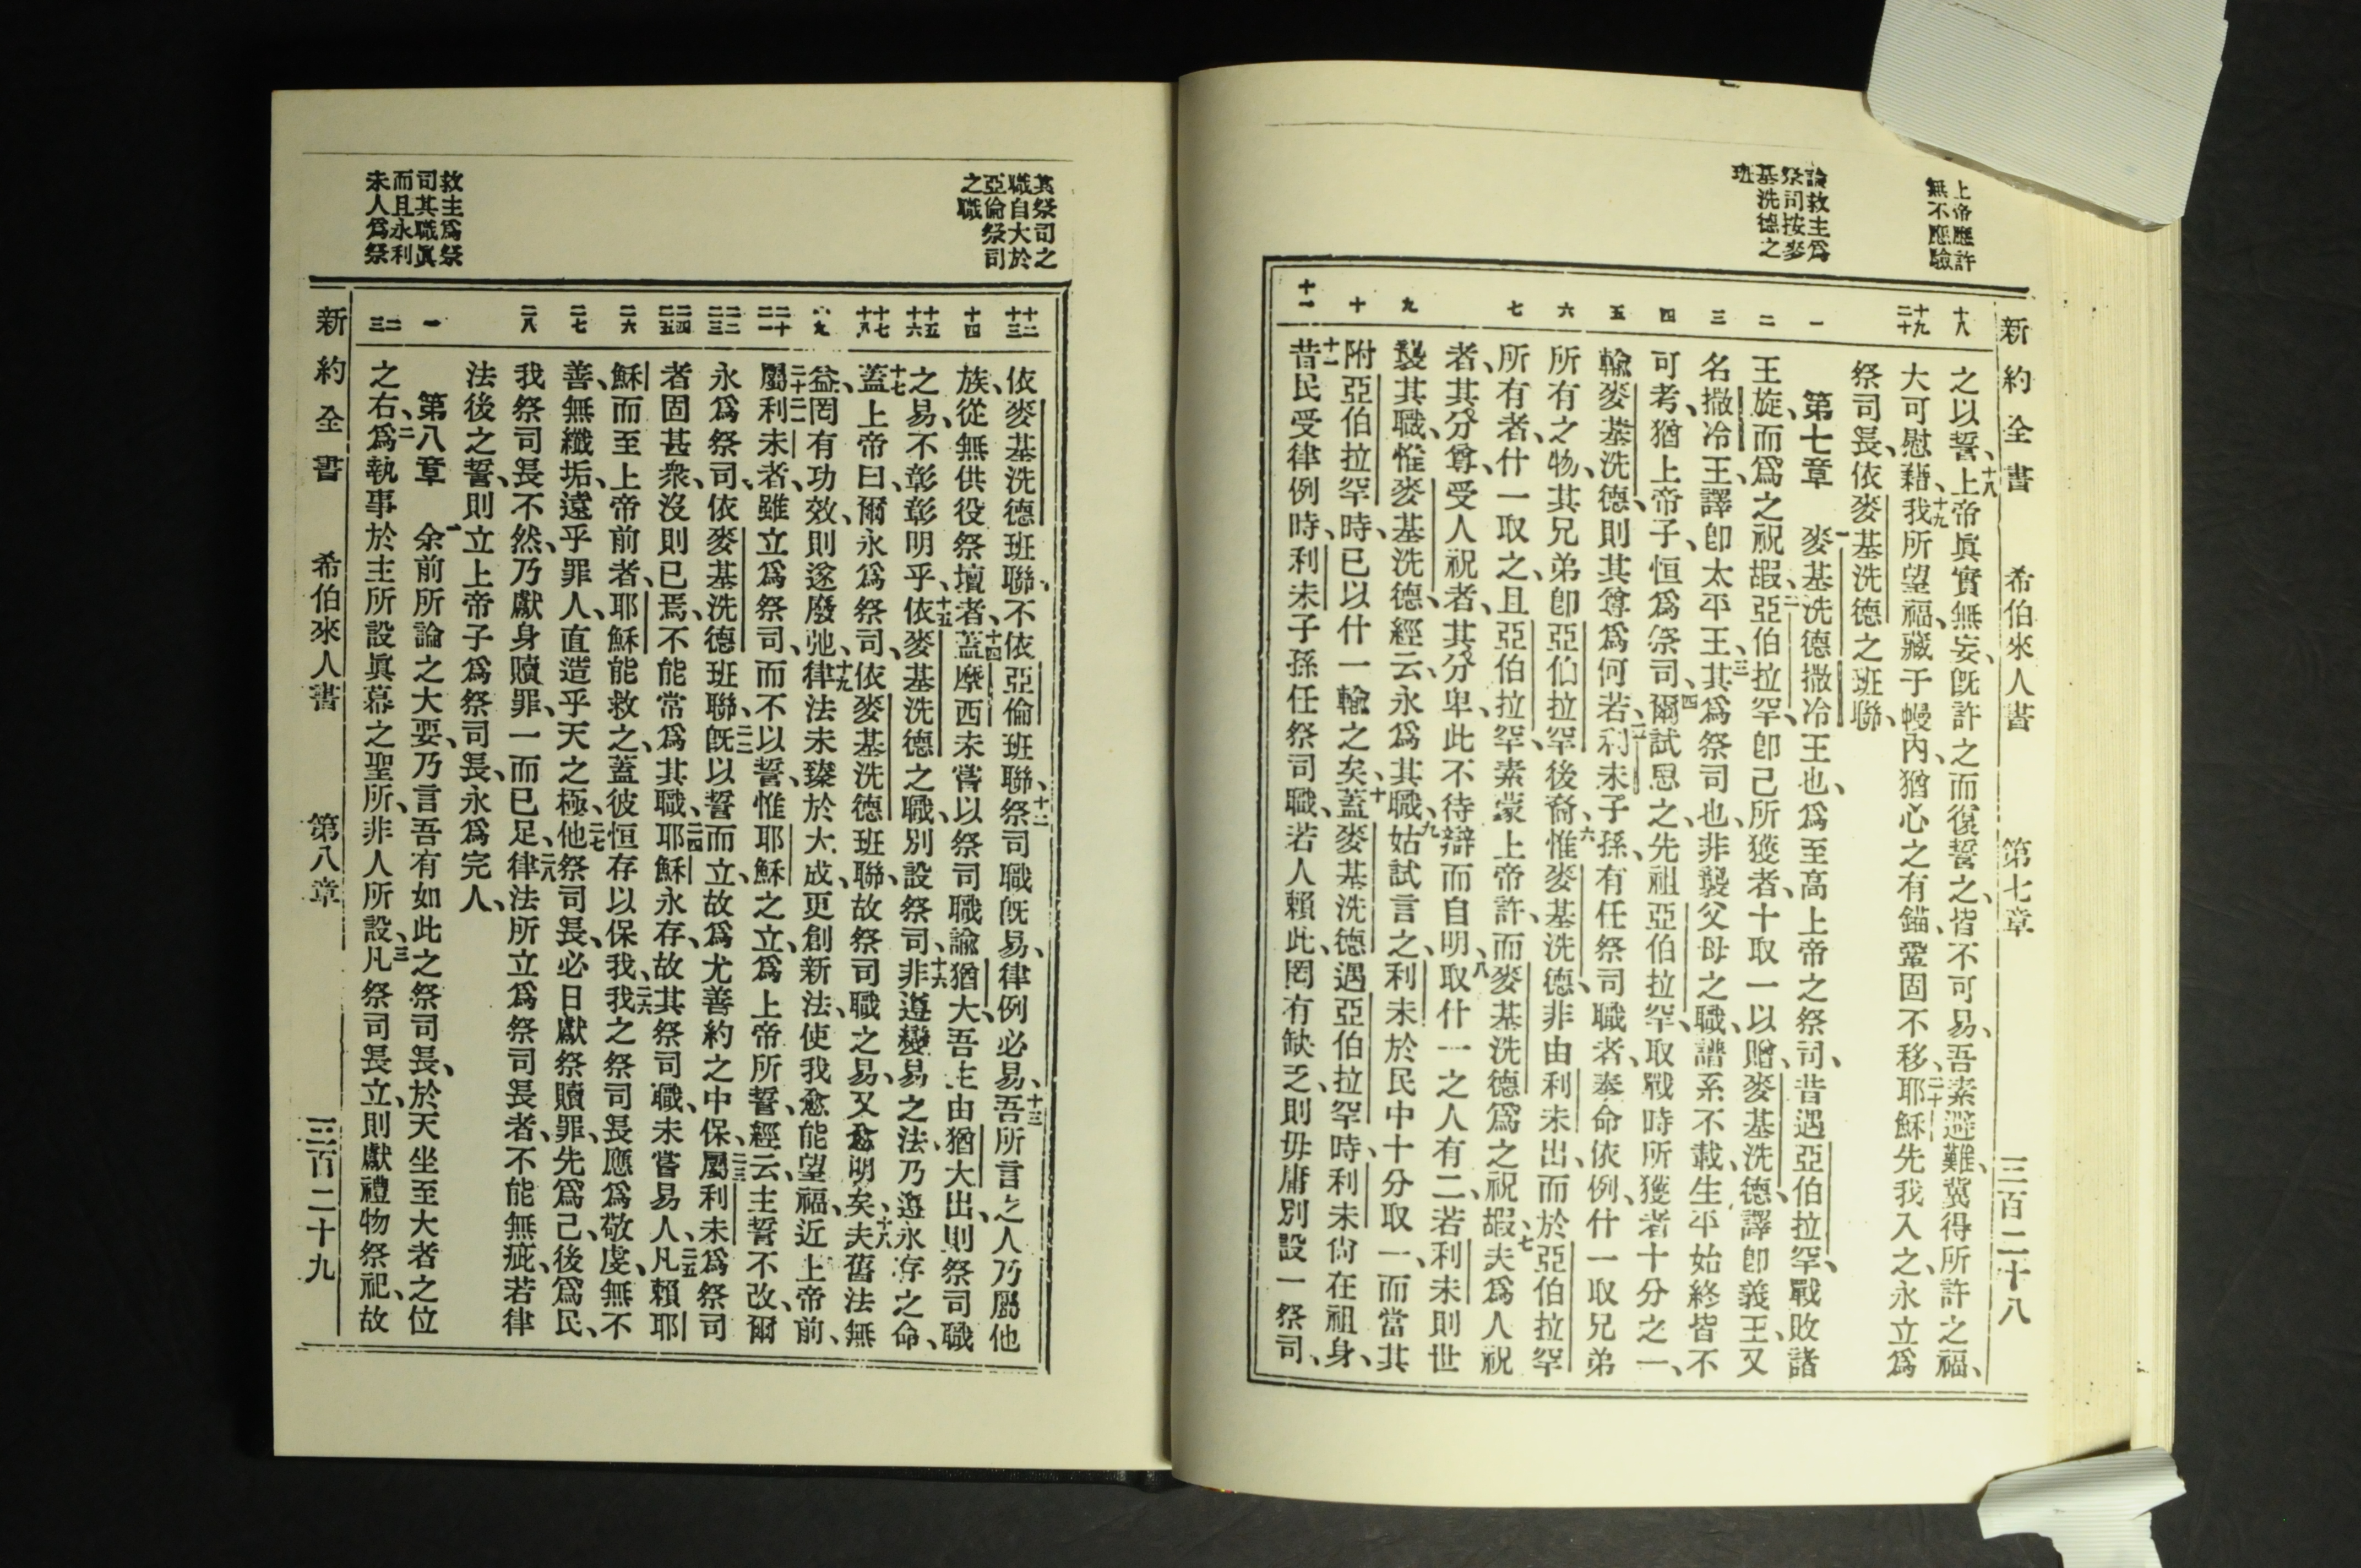 上帝應許
無不應驗
論救主爲
祭司按麥
基洗德之
班
新約全書　希伯來人書　第七章　三百二十八
十八
十九
二十
一
二
三
四
五
六
七
九
十
十一
之以誓、十八上帝眞實無妄、旣許之而復誓之、皆不可易、吾素避難、冀得所許之福、
大可慰藉、十九我所望福、藏于幔內、猶心之有錨、鞏固不移、二十耶穌先我入之、永立爲
祭司長、依麥基洗德之班聯、
第七章　一麥基洗德撒冷王也、爲至高上帝之祭司、昔遇亞伯拉罕、戰敗諸
王旋、而爲之祝嘏、二亞伯拉罕、卽己所獲者、十取一以贈、麥基洗德、譯卽義王、又
名撒冷王、譯卽太平王、三其爲祭司也、非襲父母之職、譜系不載、生平始終皆不
可考、猶上帝子、恒爲祭司、四爾試思之、先祖亞伯拉罕、取戰時所獲者十分之一、
輸麥基洗德、則其尊爲何若、五利未子孫、有任祭司職者、奉命依例、什一取兄弟
所有之物、其兄弟卽亞伯拉罕後裔、六惟麥基洗德、非由利未出、而於亞伯拉罕
所有者、什一取之、且亞伯拉罕、素蒙上帝許、而麥基洗德爲之祝嘏、七夫爲人祝
者、其分尊、受人祝者、其分卑、此不待辯而自明、八取什一之人有二、若利未則世
襲其職、惟麥基洗德、經云、永爲其職、九姑試言之、利未於民中十分取一、而當其
附亞伯拉罕時、已以什一輸之矣、十蓋麥基洗德遇亞伯拉罕時、利未尙在祖身、
十一昔民受律例時、利未子孫任祭司職、若人賴此、罔有缺乏、則毋庸別設一祭司、
其祭司之
職自大於
亞倫祭司
之職
救主爲祭
司其職眞
而且永利
未人爲祭
十二
十三
十四
十五
十六
十七
十八
十九
二十
二一
二二
二三
二四
二五
二六
二七
二八
一
二
三
依麥基洗德班聯、不依亞倫班聯、十二祭司職旣易、律例必易、十三吾所言之人乃屬他
族、從無供役祭壇者、十四蓋摩西未嘗以祭司職諭猶大、吾主由猶大出、則祭司職
之易、不彰彰明乎、十五依麥基洗德之職、別設祭司、十六非遵變易之法、乃遵永存之命、
十七蓋上帝曰、爾永爲祭司、依麥基洗德班聯、故祭司職之易、又愈明矣、十八夫舊法無
益、罔有功效、則遂廢弛、十九律法未臻於大成、更創新法、使我愈能望福、近上帝前、
二十二一屬利未者、雖立爲祭司、而不以誓、惟耶穌之立、爲上帝所誓、經云、主誓不改、爾
永爲祭司、依麥基洗德班聯、二二旣以誓而立、故爲尤善約之中保、二三屬利未爲祭司
者固甚衆、沒則已焉、不能常爲其職、二四耶穌永存、故其祭司職、未嘗易人、二五凡賴耶
穌而至上帝前者、耶穌能救之、蓋彼恒存以保我、二六我之祭司長、應爲敬虔、無不
善、無纖垢、遠乎罪人、直造乎天之極、二七他祭司長、必日獻祭贖罪、先爲己、後爲民、
我祭司長不然、乃獻身贖罪、一而已足、二八律法所立爲祭司長者、不能無疵、若律
法後之誓、則立上帝子爲祭司長、永爲完人、
第八章　一余前所論之大要、乃言吾有如此之祭司長、於天坐至大者之位
之右、二爲執事於主所設眞幕之聖所、非人所設、三凡祭司長立、則獻禮物祭祀、故
新約全書　希伯來人書　第八章　三百二十九